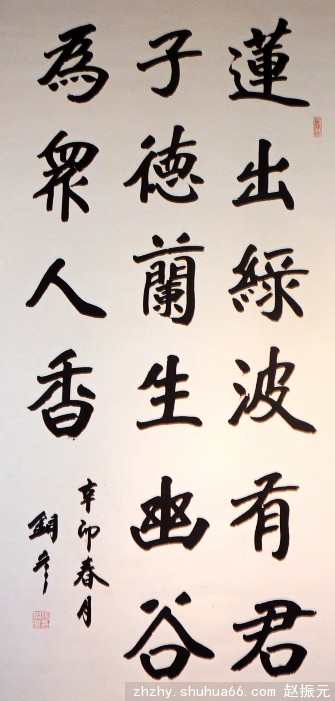 蓮出綠波有君
子德蘭生幽谷
為眾人香
辛卯春月
zhzhy.shuhua66.com 赵振元